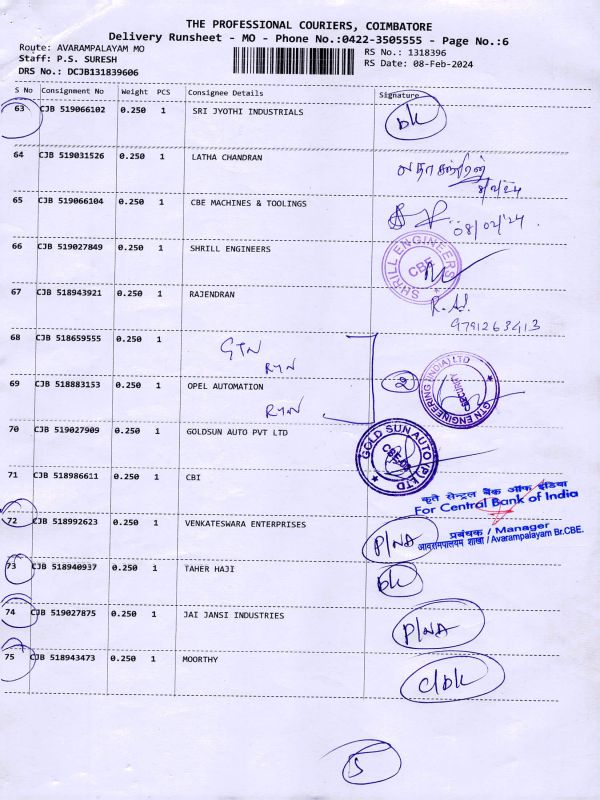 THE PROFESSIONAL COURIERS, COIMBATORE
Delivery Runsheet - MO - Phone No.:0422-3505555 - Page No.:6
Route: AVARAMPALAYAM MO
RS No.: 1318396
Staff: P.S. SURESH
RS Date: 08-Feb-2024
DRS No.: DCJB131839606
S No Consignment No Weight PCS Consignee Details Signature
63 CJB 519066102 0.250 1 SRI JYOTHI INDUSTRIALS dk
64 CJB 519031526 0.250 1 LATHA CHANDRAN
8/2/24
65 CJB 519066104 0.250 1 CBE MACHINES & TOOLINGS
08/02/24
66 CJB 519027849 0.250 1 SHRILL ENGINEERS
SHRILL ENGINEERS
CBE
67 CJB 518943921 0.250 1 RAJENDRAN
9791263413
68 CJB 518659555 0.250 1 GTN
2
GTN ENGINEERING (INDIA) LTD
69 CJB 518883153 0.250 1 OPEL AUTOMATION
70 CJB 519027909 0.250 1 GOLDSUN AUTO PVT LTD
GOLD SUN AUTO (P) LTD
71 CJB 518986611 0.250 1 CBI
कृते सेन्ट्रल बैंक ऑफ इंडिया
For Central Bank of India
प्रबंधक / Manager
आवारमपालयम शाखा / Avarampalayam Br.CBE.
72 CJB 518992623 0.250 1 VENKATESWARA ENTERPRISES P/NA
73 CJB 518940937 0.250 1 TAHER HAJI dk
74 CJB 519027875 0.250 1 JAI JANSI INDUSTRIES P/NA
75 CJB 518943473 0.250 1 MOORTHY c/dk
5